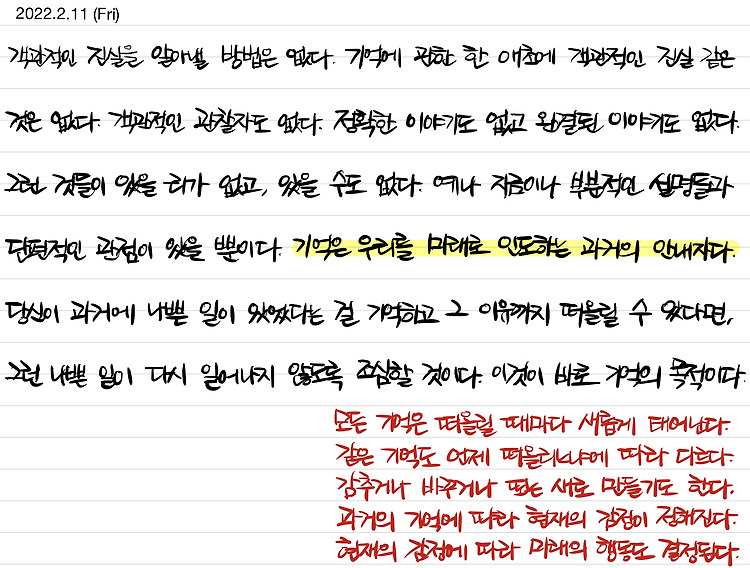 2022.2.11 (Fri)
객관적인 진실을 알아낼 방법은 없다. 기억에 관한 한 애초에 객관적인 진실 같은
것은 없다. 객관적인 관찰자도 없다. 정확한 이야기도 없고 완결된 이야기도 없다.
그런 것들이 있을 리가 없고, 있을 수도 없다. 예나 지금이나 부분적인 설명들과
단편적인 관점이 있을 뿐이다. 기억은 우리를 미래로 인도하는 과거의 안내자다.
당신이 과거에 나쁜 일이 있었다는 걸 기억하고 그 이유까지 떠올릴 수 있다면,
그런 나쁜 일이 다시 일어나지 않도록 조심할 것이다. 이것이 바로 기억의 목적이다.
모든 기억은 떠올릴 때마다 새롭게 태어난다.
같은 기억도 언제 떠올리느냐에 따라 다르다.
감추거나 바꾸거나 또는 새로 만들기도 한다.
과거의 기억에 따라 현재의 감정이 정해진다.
현재의 감정에 따라 미래의 행동도 결정된다.